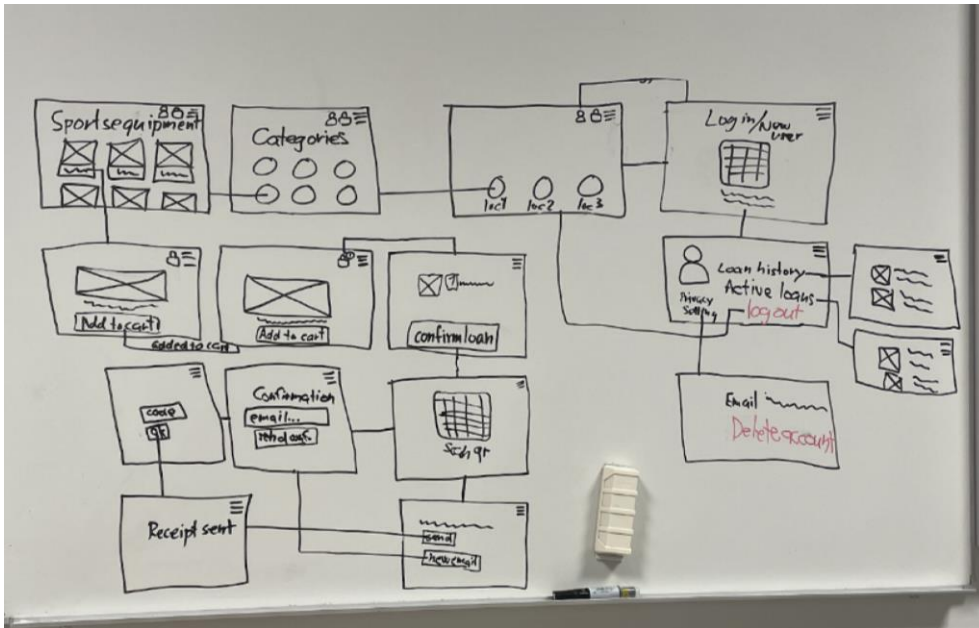 Sportsequipment
Categories
loc1 loc2 loc3
Login/New
user
Add to cart
added to cart
Add to cart
confirm loan
Loan history
Active loans
logout
Privacy
Setting
Email
Delete account
code
ok
Confirmation
email...
send conf.
Scan qr
Receipt sent
send
new email